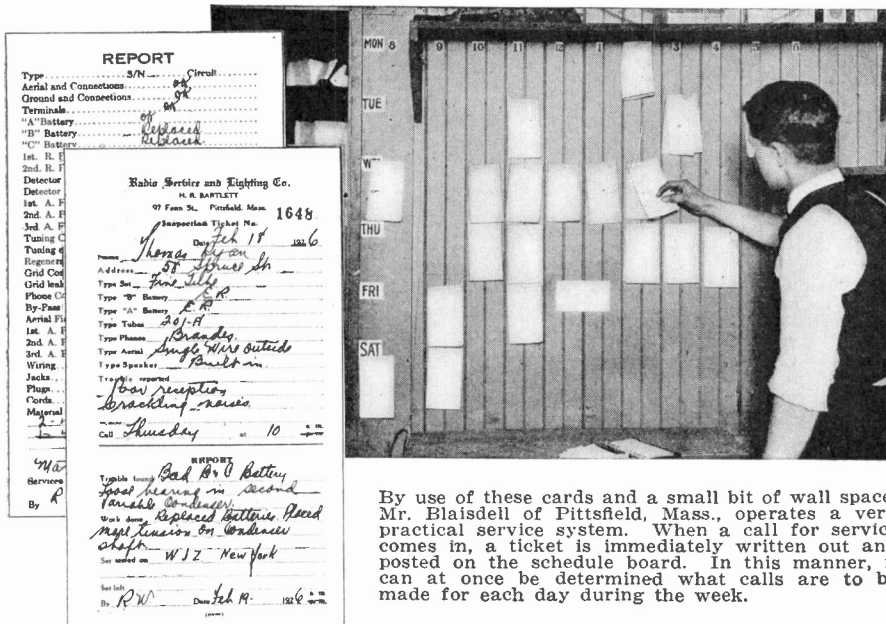 REPORT
Type S/N Circuit
Aerial and Connections ok
Ground and Connections ok
Terminals ok
"A" Battery ok
"B" Battery Replaced
"C" Battery Replaced
1st. R. F
2nd. R. F
Detector
Detector
1st. A. F
2nd. A. F
3rd. A. F
Tuning C
Tuning
Regener
Grid Co
Grid leak
Phone C
By-Pass
Aerial Fi
1st. A. F
2nd. A. F
3rd. A. F
Wiring
Jacks
Plugs
Cords
Material
Services
By R
Radio Service and Lighting Co.
H. R. BARTLETT
97 Fenn St., Pittsfield, Mass.
1648
Inspection Ticket No.
Date Feb 18 1926
Name Thomas Ryan
Address 58 Spruce St
Type Set Five Tube
Type "B" Battery E.R.
Type "A" Battery E.R.
Type Tubes 201-A
Type Phones Brandes
Type Aerial Single Wire Outside
Type Speaker Built in
Trouble reported
Poor reception
Crackling noises
Call Thursday at 10 a. m.
REPORT
Trouble found Bad B & C Battery
Loose bearing in second
Variable Condenser
Work done Replaced Batteries. Placed
more tension on Condenser
shaft
Set tested on WJZ New York
Set left
By RW Date Feb 19- 1926
(over)
MON 8 9 10 11 12 1 3 4 5 6
TUE
THU
FRI
SAT
By use of these cards and a small bit of wall space
Mr. Blaisdell of Pittsfield, Mass., operates a ver
practical service system. When a call for servic
comes in, a ticket is immediately written out an
posted on the schedule board. In this manner,
can at once be determined what calls are to b
made for each day during the week.